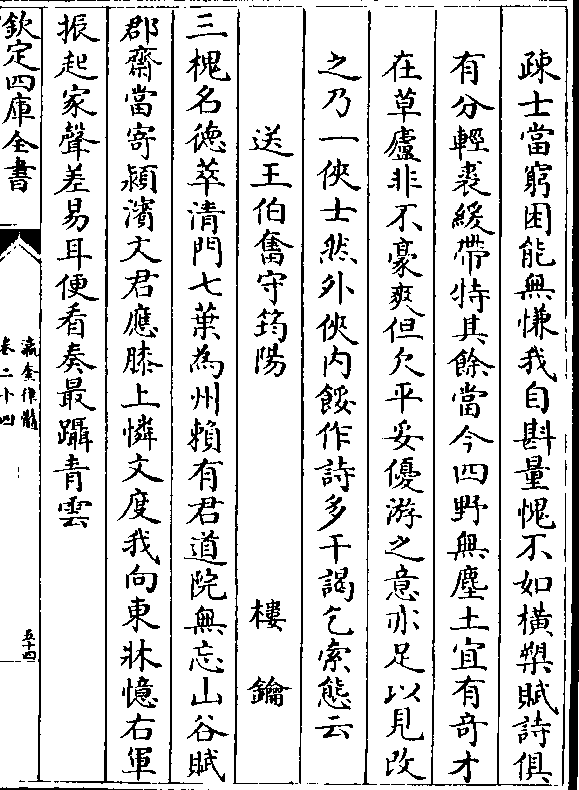 疎士當窮困能無慊我自斟量愧不如橫槊賦詩俱
有分輕裘緩帶特其餘當今四野無塵土宜有奇才
在草廬非不豪爽但欠平妥優游之意亦足以見改
之乃一俠士然外俠内餒作詩多干謁乞索態云
送王伯奮守筠陽　樓鑰
三槐名德萃清門七葉為州賴有君道院無忘山谷賦
郡齋當寄潁濱文君應膝上憐文度我向東牀憶右軍
振起家聲差易耳便看奏最躡青雲
欽定四庫全書
瀛奎律髓
卷二十四
五十四